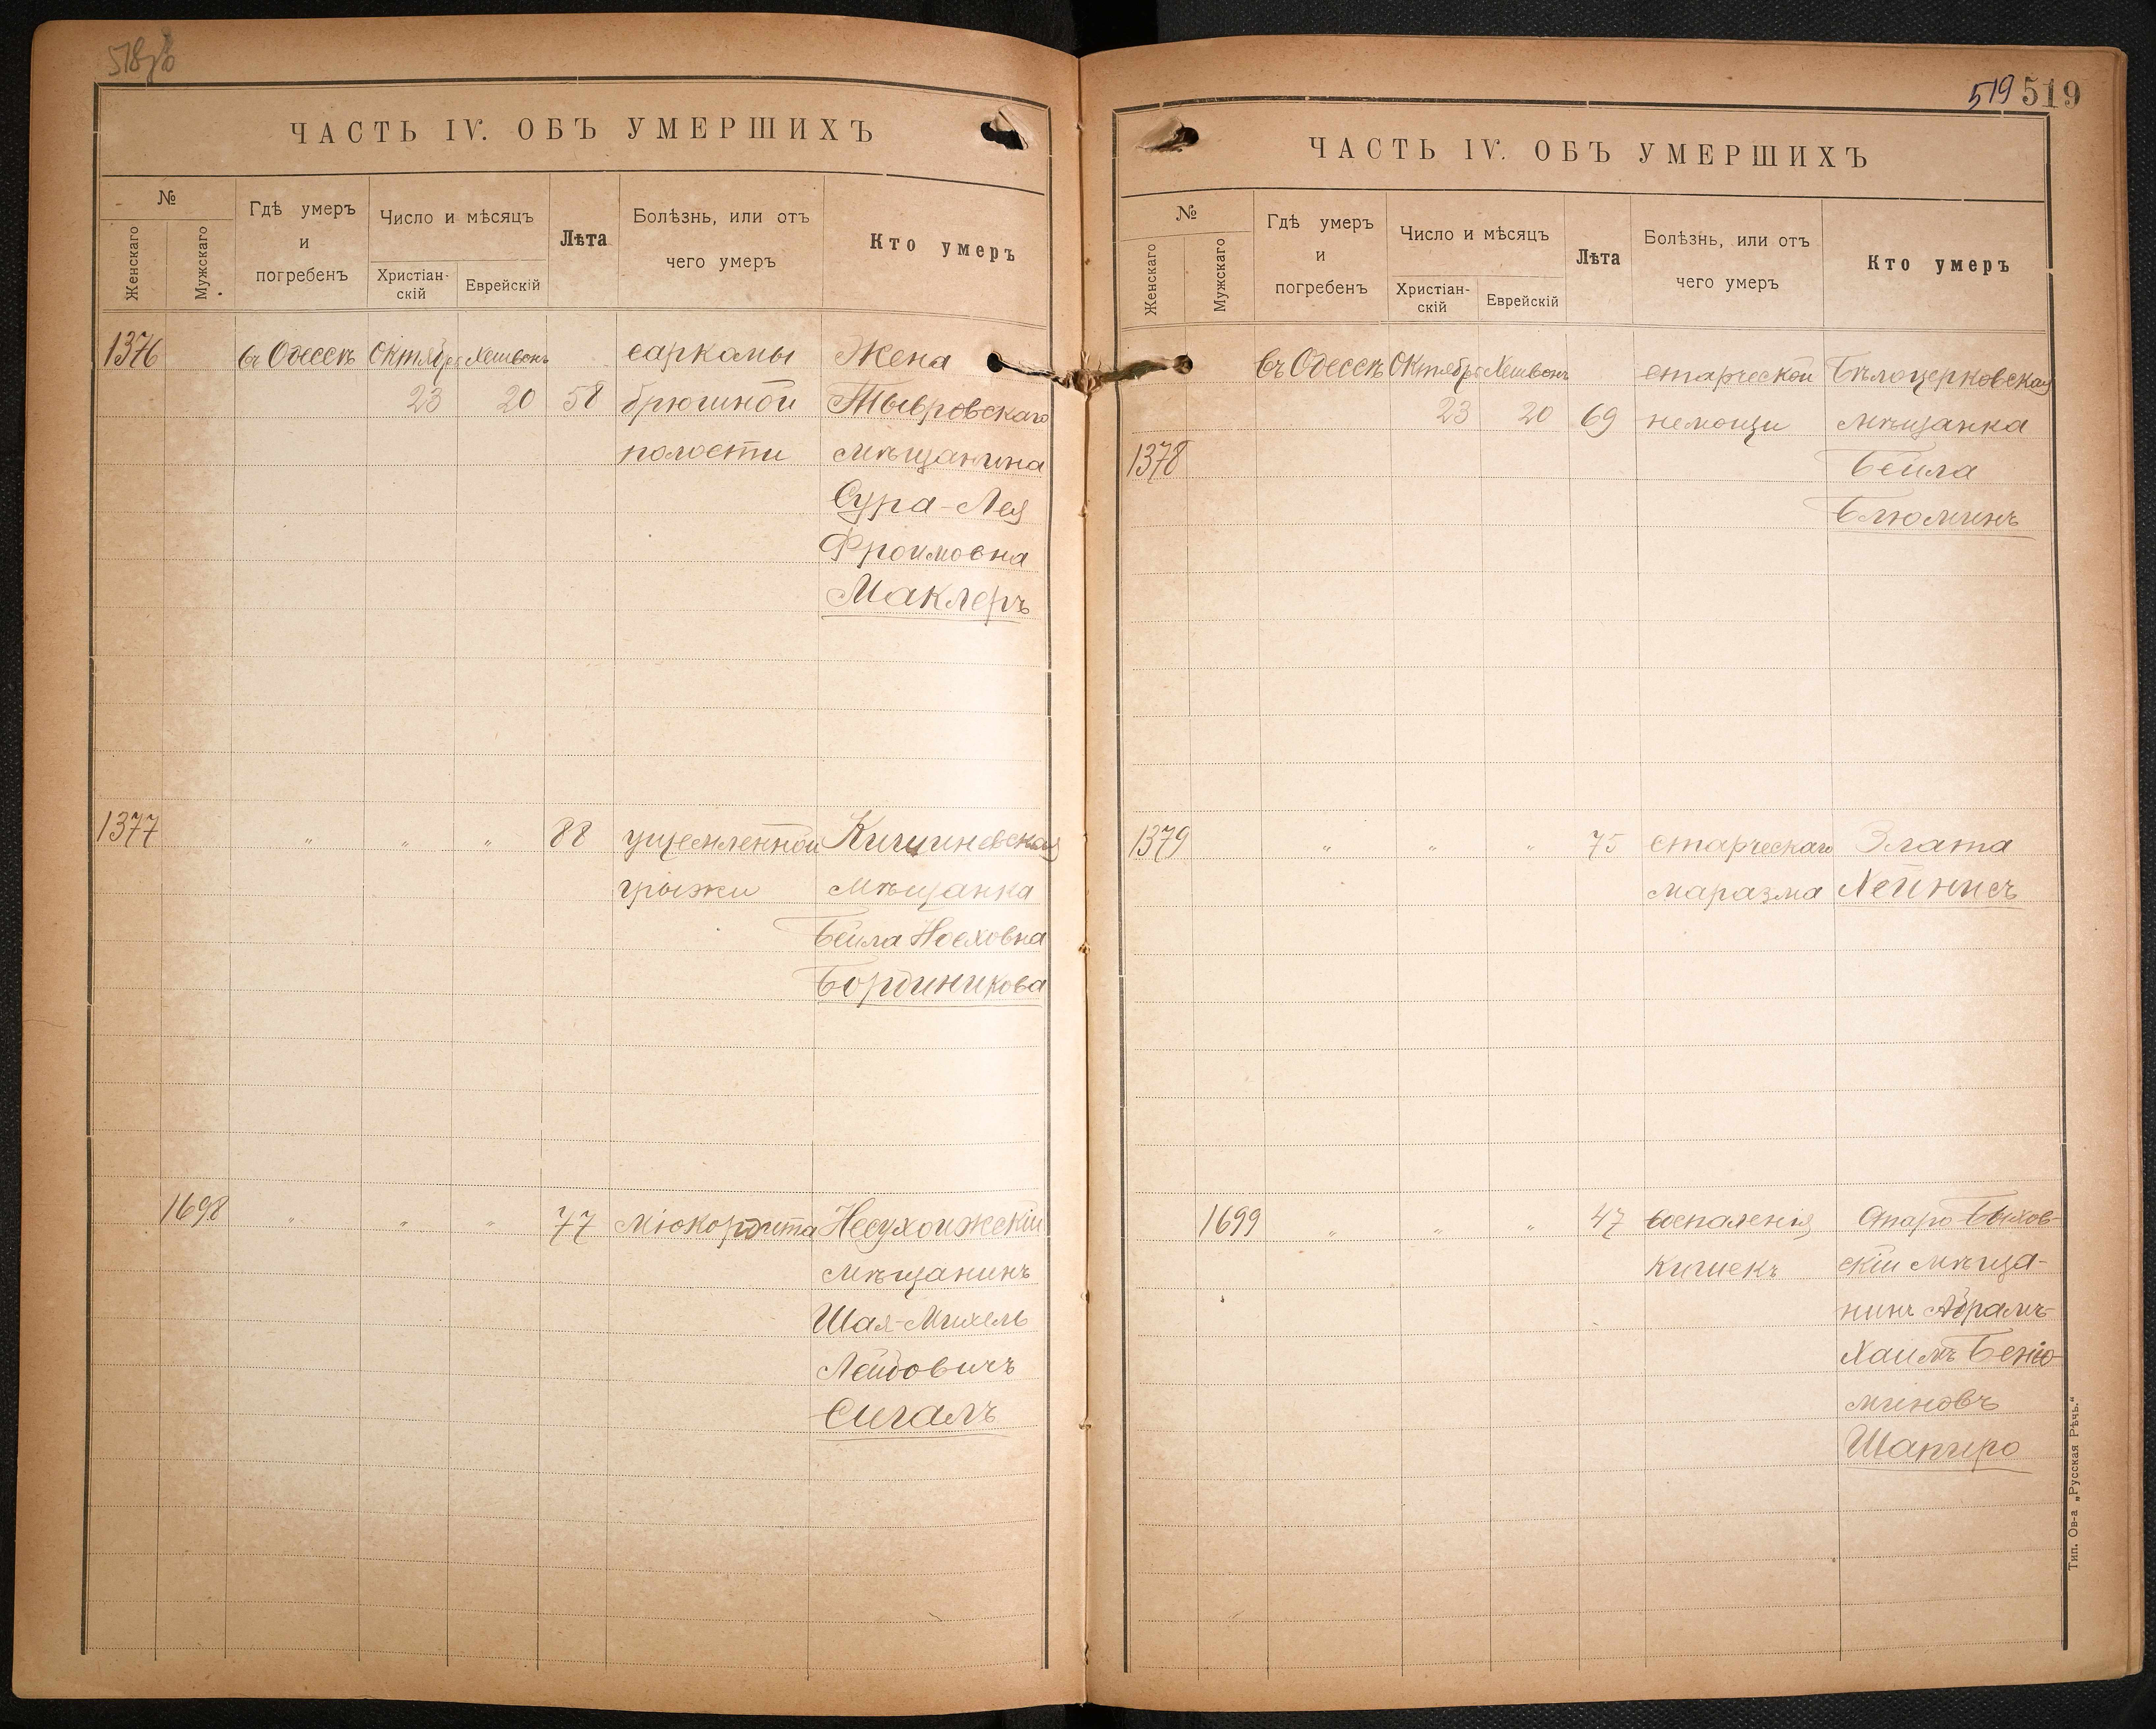 518об
ЧАСТЬ IV. ОБЪ УМЕРШИХЪ
№
Женскаго
Мужскаго
Гдѣ умеръ
и
погребенъ
Число и мѣсяцъ
Христіан-
скій
Еврейскій
Лѣта
Болѣзнь, или отъ
чего умеръ
Кто умеръ
1376 въ Одессѣ Октября Хешвонъ саркомы Жена
23 20 58 брюшной Тывровскаго
полости мѣщанина
Сура-Лея
Фроимовна
Маклеръ
1377 " " " 88 ущемленной Кишиневская
грыжи мѣщанка
Бейла Ноеховна
Бординикова
1698 " " " 77 міокордита Несухоижскій
мѣщанинъ
Шая-Михель
Лейбовичъ
Сигалъ
519 519
ЧАСТЬ IV. ОБЪ УМЕРШИХЪ
№
Женскаго
Мужскаго
Гдѣ умеръ
и
погребенъ
Число и мѣсяцъ
Христіан-
скій
Еврейскій
Лѣта
Болѣзнь, или отъ
чего умеръ
Кто умеръ
въ Одессѣ Октября Хешвонъ старческой Бѣлоцерковская
23 20 69 немощи мѣщанка
1378 Бейла
Блюминъ
1379 " " " 75 старческаго Злата
маразма Лейнисъ
1699 " " " 47 воспаленія Старо-Быхов-
кишекъ скій мѣща-
нинъ Абрамъ-
Хаимъ Беніо-
миновъ
Шапиро
Тип. Ов-а „Русская Рѣчь."